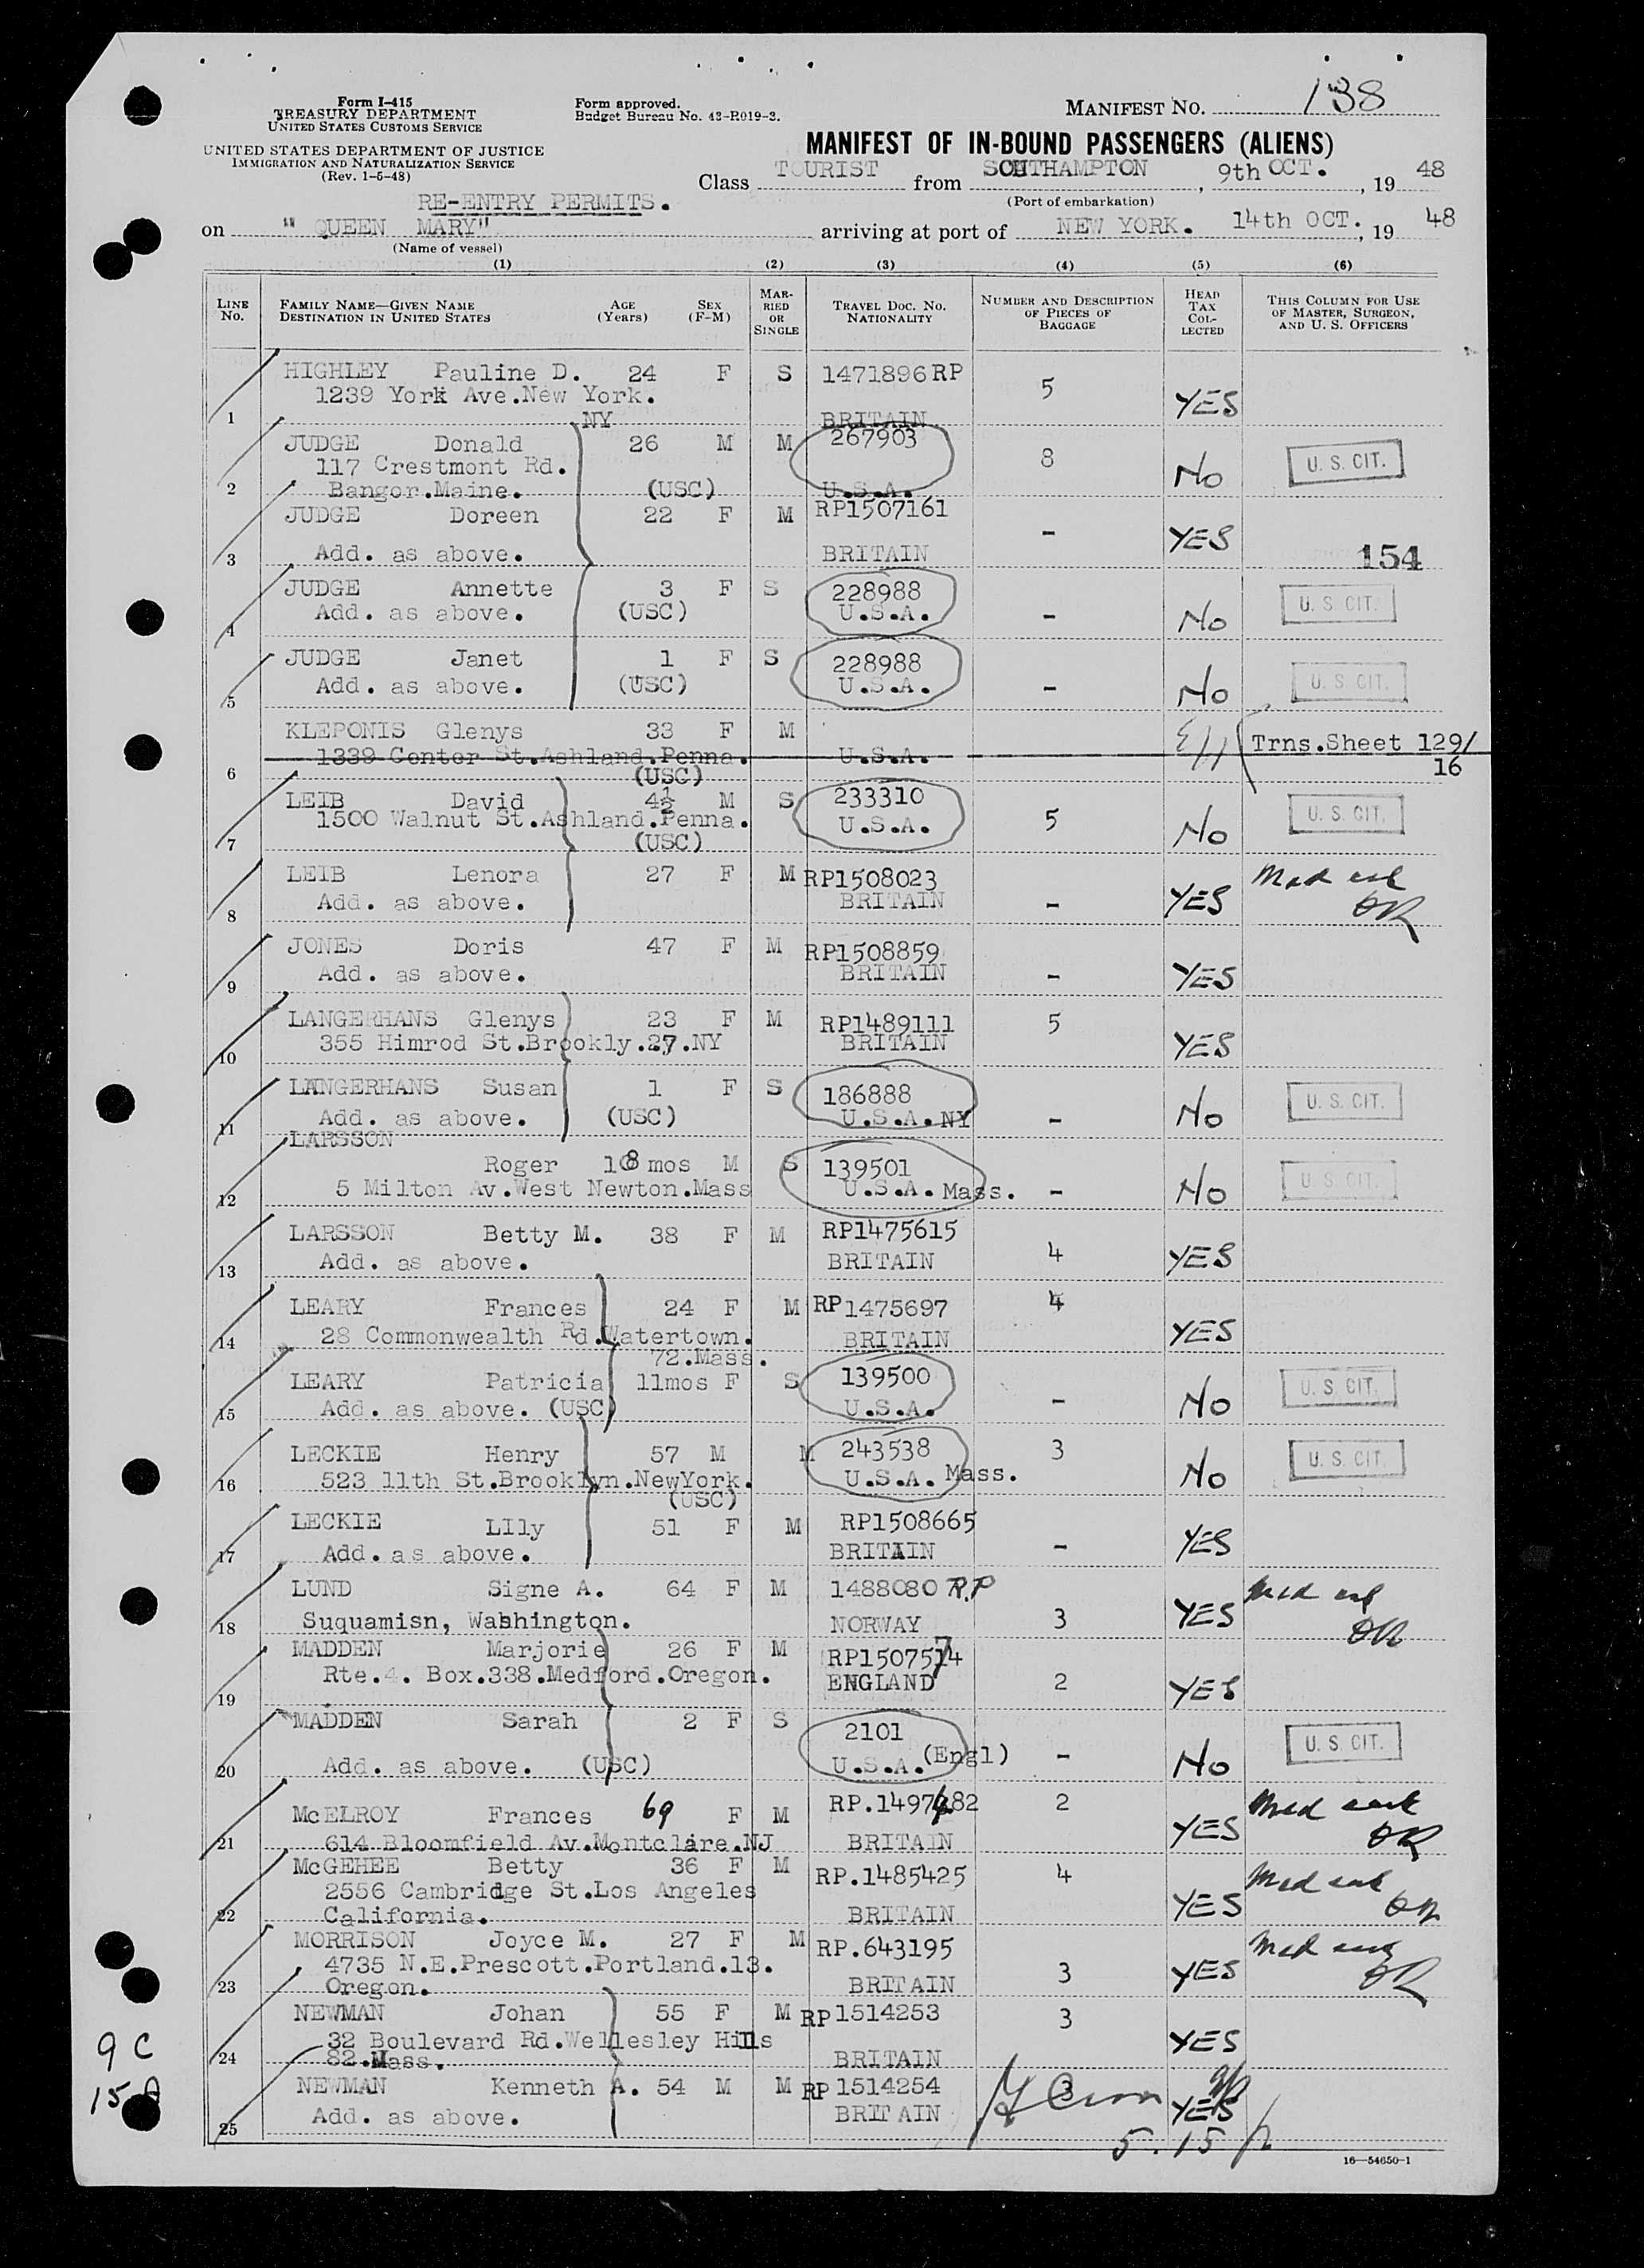 138
Form I-415
TREASURY DEPARTMENT
UNITED STATES CUSTOMS SERVICE
Form approved.
Budget Bureau No. 43-R019-3.
MANIFEST NO.
UNITED STATES DEPARTMENT OF JUSTICE
IMMIGRATION AND NATURALIZATION SERVICE
(Rev. 1-5-48)
MANIFEST OF IN-BOUND PASSENGERS (ALIENS)
Class TOURIST from SOUTHAMPTON, 9th OCT., 19 48
(Port of embarkation)
RE-ENTRY PERMITS.
on " QUEEN MARY" arriving at port of NEW YORK. 14th OCT., 19 48
(Name of vessel)
(1) (2) (3) (4) (5) (6)
LINE No. FAMILY NAME—GIVEN NAME DESTINATION IN UNITED STATES AGE (Years) SEX (F-M) MARRIED OR SINGLE TRAVEL DOC. NO. NATIONALITY NUMBER AND DESCRIPTION OF PIECES OF BAGGAGE HEAD TAX COLLECTED THIS COLUMN FOR USE OF MASTER, SURGEON, AND U. S. OFFICERS
HIGHLEY Pauline D. 24 F S 1471896 RP 5
1239 York Ave.New York.
1 NY BRITAIN YES
JUDGE Donald 26 M M 267903 8
117 Crestmont Rd. U. S. CIT.
2 Bangor.Maine. (USC) U.S.A. No
JUDGE Doreen 22 F M RP1507161 -
3 Add. as above. BRITAIN YES 154
JUDGE Annette 3 F S 228988 U. S. CIT.
4 Add. as above. (USC) U.S.A. - No
JUDGE Janet 1 F S 228988 U. S. CIT.
5 Add. as above. (USC) U.S.A. - No
KLEPONIS Glenys 33 F M Trns.Sheet 129/
6 1339 Center St.Ashland.Penna. U.S.A. 16
(USC)
LEIB David 4½ M S 233310 U. S. CIT.
7 1500 Walnut St.Ashland.Penna. U.S.A. 5 No
(USC)
LEIB Lenora 27 F M RP1508023
8 Add. as above. BRITAIN - YES
JONES Doris 47 F M RP1508859
9 Add. as above. BRITAIN - YES
LANGERHANS Glenys 23 F M RP1489111 5
10 355 Himrod St.Brookly.27.NY BRITAIN YES
LANGERHANS Susan 1 F S 186888 U. S. CIT.
11 Add. as above. (USC) U.S.A. NY - No
LARSSON
Roger 18 mos M S 139501 U. S. CIT.
12 5 Milton Av.West Newton.Mass U.S.A. Mass. - No
LARSSON Betty M. 38 F M RP1475615
13 Add. as above. BRITAIN 4 YES
LEARY Frances 24 F M RP1475697 4
14 28 Commonwealth Rd.Watertown. BRITAIN YES
72.Mass.
LEARY Patricia 11mos F S 139500 U. S. CIT.
15 Add. as above. (USC) U.S.A. - No
LECKIE Henry 57 M M 243538 3 U. S. CIT.
16 523 11th St.Brooklyn.NewYork. U.S.A. Mass. No
(USC)
LECKIE LIly 51 F M RP1508665
17 Add. as above. BRITAIN - YES
LUND Signe A. 64 F M 1488080 R.P
18 Suquamisn, Washington. NORWAY 3 YES
MADDEN Marjorie 26 F M RP1507574
Rte.4. Box.338.Medford.Oregon. ENGLAND 2
19 YES
MADDEN Sarah 2 F S 2101 U. S. CIT.
20 Add. as above. (USC) U.S.A. (Engl) - No
McELROY Frances 69 F M 2
21 614 Bloomfield Av.Montclaire.NJ BRITAIN YES
McGEHEE Betty 36 F M RP.1485425 4
2556 Cambridge St.Los Angeles
22 California. BRITAIN YES
MORRISON Joyce M. 27 F M RP.643195
4735 N.E.Prescott.Portland.13.
23 Oregon. BRITAIN 3 YES
NEWMAN Johan 55 F M RP1514253 3
32 Boulevard Rd.Wellesley Hills
24 82.Mass. BRITAIN YES
9 C
NEWMAN Kenneth A. 54 M M RP 1514254 3
25 Add. as above. BRITAIN YES
15
5.15
16—54650-1